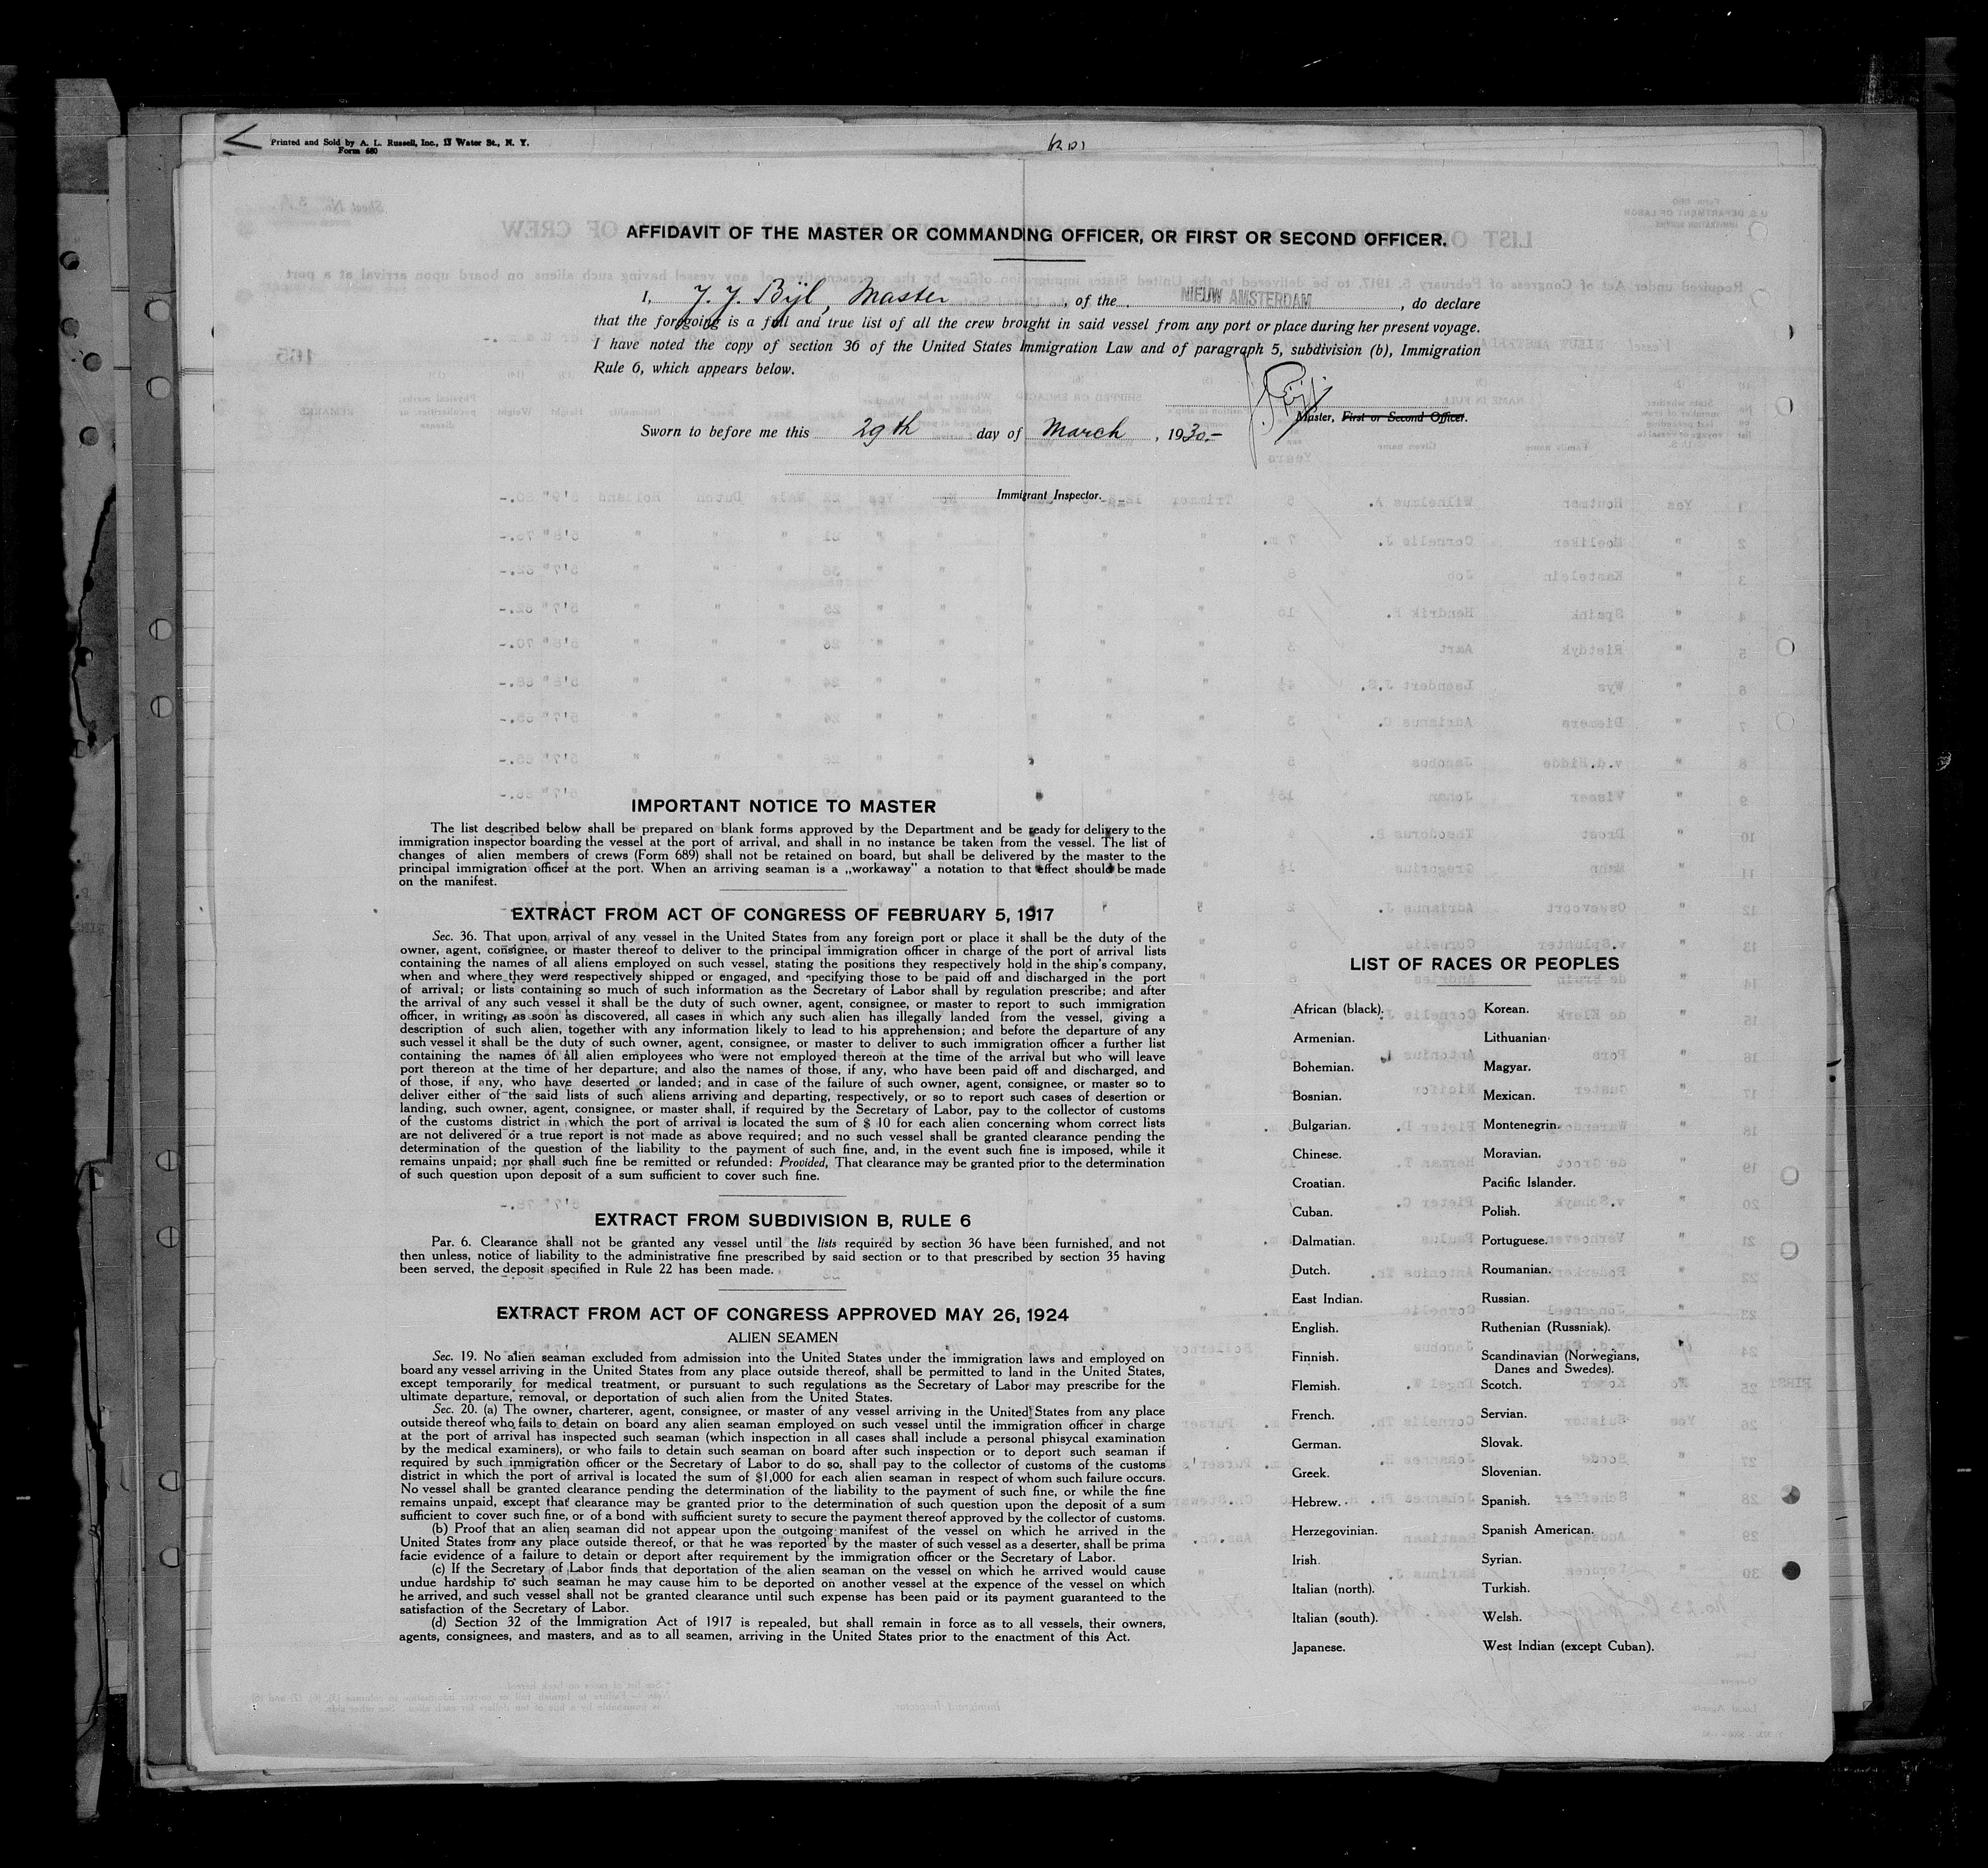 Printed and Sold by A. L. Russell, Inc., 13 Water St., N. Y.
Form 680
AFFIDAVIT OF THE MASTER OR COMMANDING OFFICER, OR FIRST OR SECOND OFFICER.
I, J. J. Bijl, Master, of the NIEUW AMSTERDAM, do declare
that the foregoing is a full and true list of all the crew brought in said vessel from any port or place during her present voyage.
I have noted the copy of section 36 of the United States Immigration Law and of paragraph 5, subdivision (b), Immigration
Rule 6, which appears below.
Master, First or Second Officer.
Sworn to before me this 29th day of March, 1930.-
Immigrant Inspector.
IMPORTANT NOTICE TO MASTER
The list described below shall be prepared on blank forms approved by the Department and be ready for delivery to the
immigration inspector boarding the vessel at the port of arrival, and shall in no instance be taken from the vessel. The list of
changes of alien members of crews (Form 689) shall not be retained on board, but shall be delivered by the master to the
principal immigration officer at the port. When an arriving seaman is a „workaway" a notation to that effect should be made
on the manifest.
EXTRACT FROM ACT OF CONGRESS OF FEBRUARY 5, 1917
Sec. 36. That upon arrival of any vessel in the United States from any foreign port or place it shall be the duty of the
owner, agent, consignee, or master thereof to deliver to the principal immigration officer in charge of the port of arrival lists
containing the names of all aliens employed on such vessel, stating the positions they respectively hold in the ship's company,
when and where they were respectively shipped or engaged, and specifying those to be paid off and discharged in the port
of arrival; or lists containing so much of such information as the Secretary of Labor shall by regulation prescribe; and after
the arrival of any such vessel it shall be the duty of such owner, agent, consignee, or master to report to such immigration
officer, in writing, as soon as discovered, all cases in which any such alien has illegally landed from the vessel, giving a
description of such alien, together with any information likely to lead to his apprehension; and before the departure of any
such vessel it shall be the duty of such owner, agent, consignee, or master to deliver to such immigration officer a further list
containing the names of all alien employees who were not employed thereon at the time of the arrival but who will leave
port thereon at the time of her departure; and also the names of those, if any, who have been paid off and discharged, and
of those, if any, who have deserted or landed; and in case of the failure of such owner, agent, consignee, or master so to
deliver either of the said lists of such aliens arriving and departing, respectively, or so to report such cases of desertion or
landing, such owner, agent, consignee, or master shall, if required by the Secretary of Labor, pay to the collector of customs
of the customs district in which the port of arrival is located the sum of $ 10 for each alien concerning whom correct lists
are not delivered or a true report is not made as above required; and no such vessel shall be granted clearance pending the
determination of the question of the liability to the payment of such fine, and, in the event such fine is imposed, while it
remains unpaid; nor shall such fine be remitted or refunded: Provided, That clearance may be granted prior to the determination
of such question upon deposit of a sum sufficient to cover such fine.
EXTRACT FROM SUBDIVISION B, RULE 6
Par. 6. Clearance shall not be granted any vessel until the lists required by section 36 have been furnished, and not
then unless, notice of liability to the administrative fine prescribed by said section or to that prescribed by section 35 having
been served, the deposit specified in Rule 22 has been made.
EXTRACT FROM ACT OF CONGRESS APPROVED MAY 26, 1924
ALIEN SEAMEN
Sec. 19. No alien seaman excluded from admission into the United States under the immigration laws and employed on
board any vessel arriving in the United States from any place outside thereof, shall be permitted to land in the United States,
except temporarily for medical treatment, or pursuant to such regulations as the Secretary of Labor may prescribe for the
ultimate departure, removal, or deportation of such alien from the United States.
Sec. 20. (a) The owner, charterer, agent, consignee, or master of any vessel arriving in the United States from any place
outside thereof who fails to detain on board any alien seaman employed on such vessel until the immigration officer in charge
at the port of arrival has inspected such seaman (which inspection in all cases shall include a personal phisycal examination
by the medical examiners), or who fails to detain such seaman on board after such inspection or to deport such seaman if
required by such immigration officer or the Secretary of Labor to do so, shall pay to the collector of customs of the customs
district in which the port of arrival is located the sum of $1,000 for each alien seaman in respect of whom such failure occurs.
No vessel shall be granted clearance pending the determination of the liability to the payment of such fine, or while the fine
remains unpaid, except that clearance may be granted prior to the determination of such question upon the deposit of a sum
sufficient to cover such fine, or of a bond with sufficient surety to secure the payment thereof approved by the collector of customs.
(b) Proof that an alien seaman did not appear upon the outgoing manifest of the vessel on which he arrived in the
United States from any place outside thereof, or that he was reported by the master of such vessel as a deserter, shall be prima
facie evidence of a failure to detain or deport after requirement by the immigration officer or the Secretary of Labor.
(c) If the Secretary of Labor finds that deportation of the alien seaman on the vessel on which he arrived would cause
undue hardship to such seaman he may cause him to be deported on another vessel at the expence of the vessel on which
he arrived, and such vessel shall not be granted clearance until such expense has been paid or its payment guaranteed to the
satisfaction of the Secretary of Labor.
(d) Section 32 of the Immigration Act of 1917 is repealed, but shall remain in force as to all vessels, their owners,
agents, consignees, and masters, and as to all seamen, arriving in the United States prior to the enactment of this Act.
LIST OF RACES OR PEOPLES
African (black).
Armenian.
Bohemian.
Bosnian.
Bulgarian.
Chinese.
Croatian.
Cuban.
Dalmatian.
Dutch.
East Indian.
English.
Finnish.
Flemish.
French.
German.
Greek.
Hebrew.
Herzegovinian.
Irish.
Italian (north).
Italian (south).
Japanese.
Korean.
Lithuanian.
Magyar.
Mexican.
Montenegrin.
Moravian.
Pacific Islander.
Polish.
Portuguese.
Roumanian.
Russian.
Ruthenian (Russniak).
Scandinavian (Norwegians,
Danes and Swedes).
Scotch.
Servian.
Slovak.
Slovenian.
Spanish.
Spanish American.
Syrian.
Turkish.
Welsh.
West Indian (except Cuban).